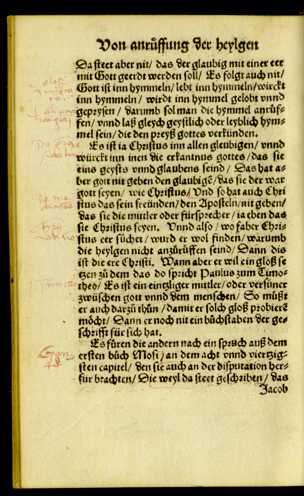 Von anrüffung der heylgen
Da steet aber nit / das der glaubig mit einer eer
mit Gott geerdt werden soll / Es folgt auch nit /
Gott ist inn hymmeln / lebt inn hymmeln / würckt
inn hymmeln / wirdt inn hymmel gelobt vnnd
geprysen / darumb sol man die hymmel anrüf-
fen / vnnd laß gleych geystlich oder leyblich hym-
mel sein / die den preyß gottes verkünden.
Es ist ia Christus inn allen gleubigen / vnnd
würckt inn inen die erkantnus gottes / das sie
eins geysts vnnd glaubens seind / Das hat a-
ber gott nit geben den glaubigē / das sie der war
gott seyen / wie Christus / Und so hat auch Chri
stus das sein freünden / den Aposteln / nit geben /
das sie die mutler oder fürsprecher / ia eben das
sie Christus seyen. Vnnd also / wo faber Chris-
tus eer süchet / wurd er wol finden / warumb
die heylgen nicht anzürüffen seind / Dann dis
ist die ere Christi. Wann aber er wil ein gloß se-
tzen zu dem das do spricht Paulus zum Timo-
theo / Es ist ein eintzliger mutler / oder versüner
zwüschen gott vnnd dem menschen / So müßt
er auch darzü thün / damit er solch gloß probierē
möcht / Dann er noch nit ein büchstaben der ge-
schrifft für sich hat.
Es füren die andern nach ein spruch auß dem
ersten büch Mosi / an dem acht vnnd viertzig-
sten capitel / den sie auch an der disputation her-
für brachten / Die weyl da steet geschriben / das
Jacob